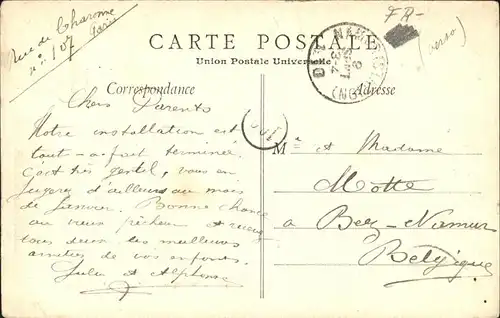 Rue de Charonne
n° 107 Paris
FR-
(verso)
CARTE POSTALE
Union Postale Universelle
NAMUR
Correspondance
Adresse
Chers Parents
Notre installation est
tout-a-fait terminée
C'est très gentil, vous en
jugerez d'ailleurs au mois
de Janvier. Bonne chance
au vieux pêcheur et recevez
tous deux les meilleures
amitiés de vos enfants.
Julia et Alphonse
Mr et Madame
Motte
à Beez-Namur
Belgique